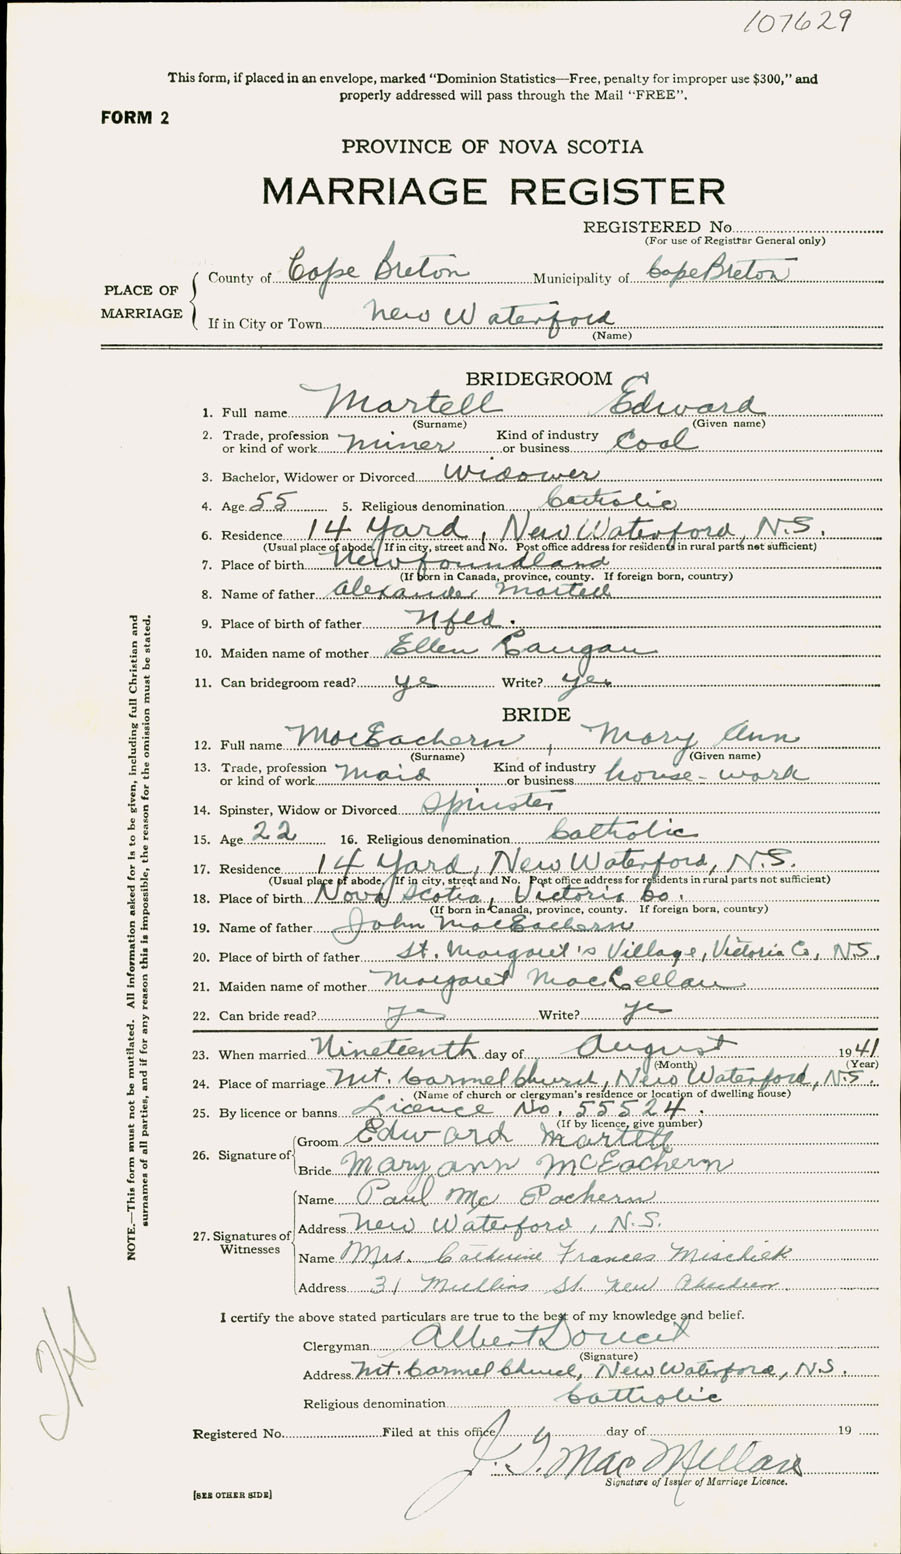 107629
This form, if placed in an envelope, marked "Dominion Statistics—Free, penalty for improper use $300," and
properly addressed will pass through the Mail "FREE".
FORM 2
PROVINCE OF NOVA SCOTIA
MARRIAGE REGISTER
REGISTERED No
(For use of Registrar General only)
PLACE OF MARRIAGE
County of Cape Breton Municipality of Cape Breton
If in City or Town New Waterford
(Name)
BRIDEGROOM
1. Full name Martell Edward
(Surname) (Given name)
2. Trade, profession or kind of work miner Kind of industry or business Coal
3. Bachelor, Widower or Divorced Widower
4. Age 55 5. Religious denomination Catholic
6. Residence 14 Yard, New Waterford, N.S.
(Usual place of abode. If in city, street and No. Post office address for residents in rural parts not sufficient)
7. Place of birth Newfoundland
(If born in Canada, province, county. If foreign born, country)
8. Name of father Alexander Martell
9. Place of birth of father Nfld.
10. Maiden name of mother Ellen
11. Can bridegroom read? yes Write? yes
BRIDE
12. Full name MacEachern, Mary Ann
(Surname) (Given name)
13. Trade, profession or kind of work maid Kind of industry or business house-work
14. Spinster, Widow or Divorced Spinster
15. Age 22 16. Religious denomination Catholic
17. Residence 14 Yard, New Waterford, N.S.
(Usual place of abode. If in city, street and No. Post office address for residents in rural parts not sufficient)
18. Place of birth Nova Scotia, Victoria Co.
(If born in Canada, province, county. If foreign born, country)
19. Name of father John MacEachern
20. Place of birth of father St. Margaret's Village, Victoria Co, N.S.
21. Maiden name of mother Margaret MacLellan
22. Can bride read? yes Write? yes
23. When married Nineteenth day of August 1941
(Month) (Year)
24. Place of marriage Mt. Carmel Church, New Waterford, N.S.
(Name of church or clergyman's residence or location of dwelling house)
25. By licence or banns Licence No. 55524.
(If by licence, give number)
26. Signature of
Groom Edward Martell
Bride Mary ann McEachern
27. Signatures of Witnesses
Name Paul Mc Eachern
Address New Waterford, N.S.
Name Mrs. Catherine Frances Mischiek
Address 31 Mullins St. New
I certify the above stated particulars are true to the best of my knowledge and belief.
Clergyman Albert Doucet
(Signature)
Address Mt. Carmel Church, New Waterford, N.S.
Religious denomination Catholic
Registered No. Filed at this office day of 19
J. J. MacMillan
Signature of Issuer of Marriage Licence.
[SEE OTHER SIDE]
NOTE.—This form must not be mutilated. All information asked for is to be given, including full Christian and
surnames of all parties, and if for any reason this is impossible, the reason for the omission must be stated.